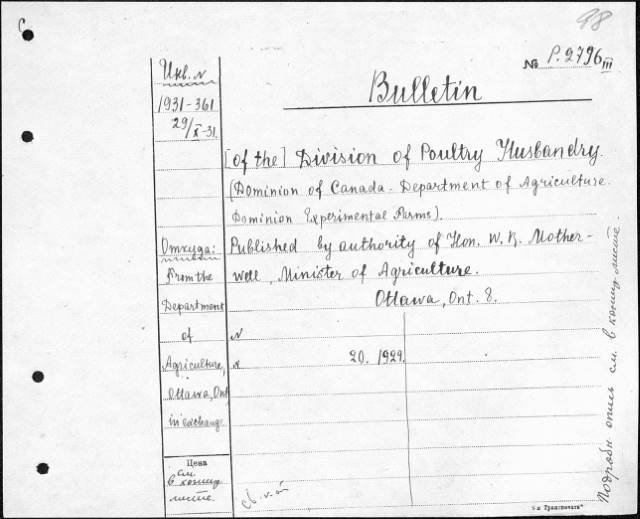 98
№ P.2796 III
Bulletin
Инв. N
1931-361
29/X-31.
[of the] Division of Poultry Husbandry.
(Dominion of Canada. Department of Agriculture.
Dominion Experimental Farms).
Откуда:
From the
Department
of
Agriculture,
Ottawa, Ont
in exchange
Published by authority of Hon. W. R. Mother-
well, Minister of Agriculture.
Ottawa, Ont. 8.
N
20. 1929.
Цена
см.
в конец
листе
Подробн. опись см. в конец листе.